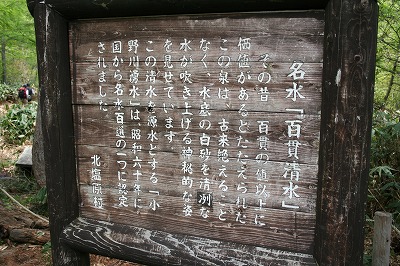 名水「百貫清水」
その昔　百貫の値以上に
価値があるとたたえられた
この泉は、古来絶えること
なく、水底の白砂を清冽な
水が吹き上げる神秘的な姿
を見せています
この清水を源水とする「小
野川湧水」は、昭和六十年に
国から名水百選の一つに認定
されました。
北塩原村